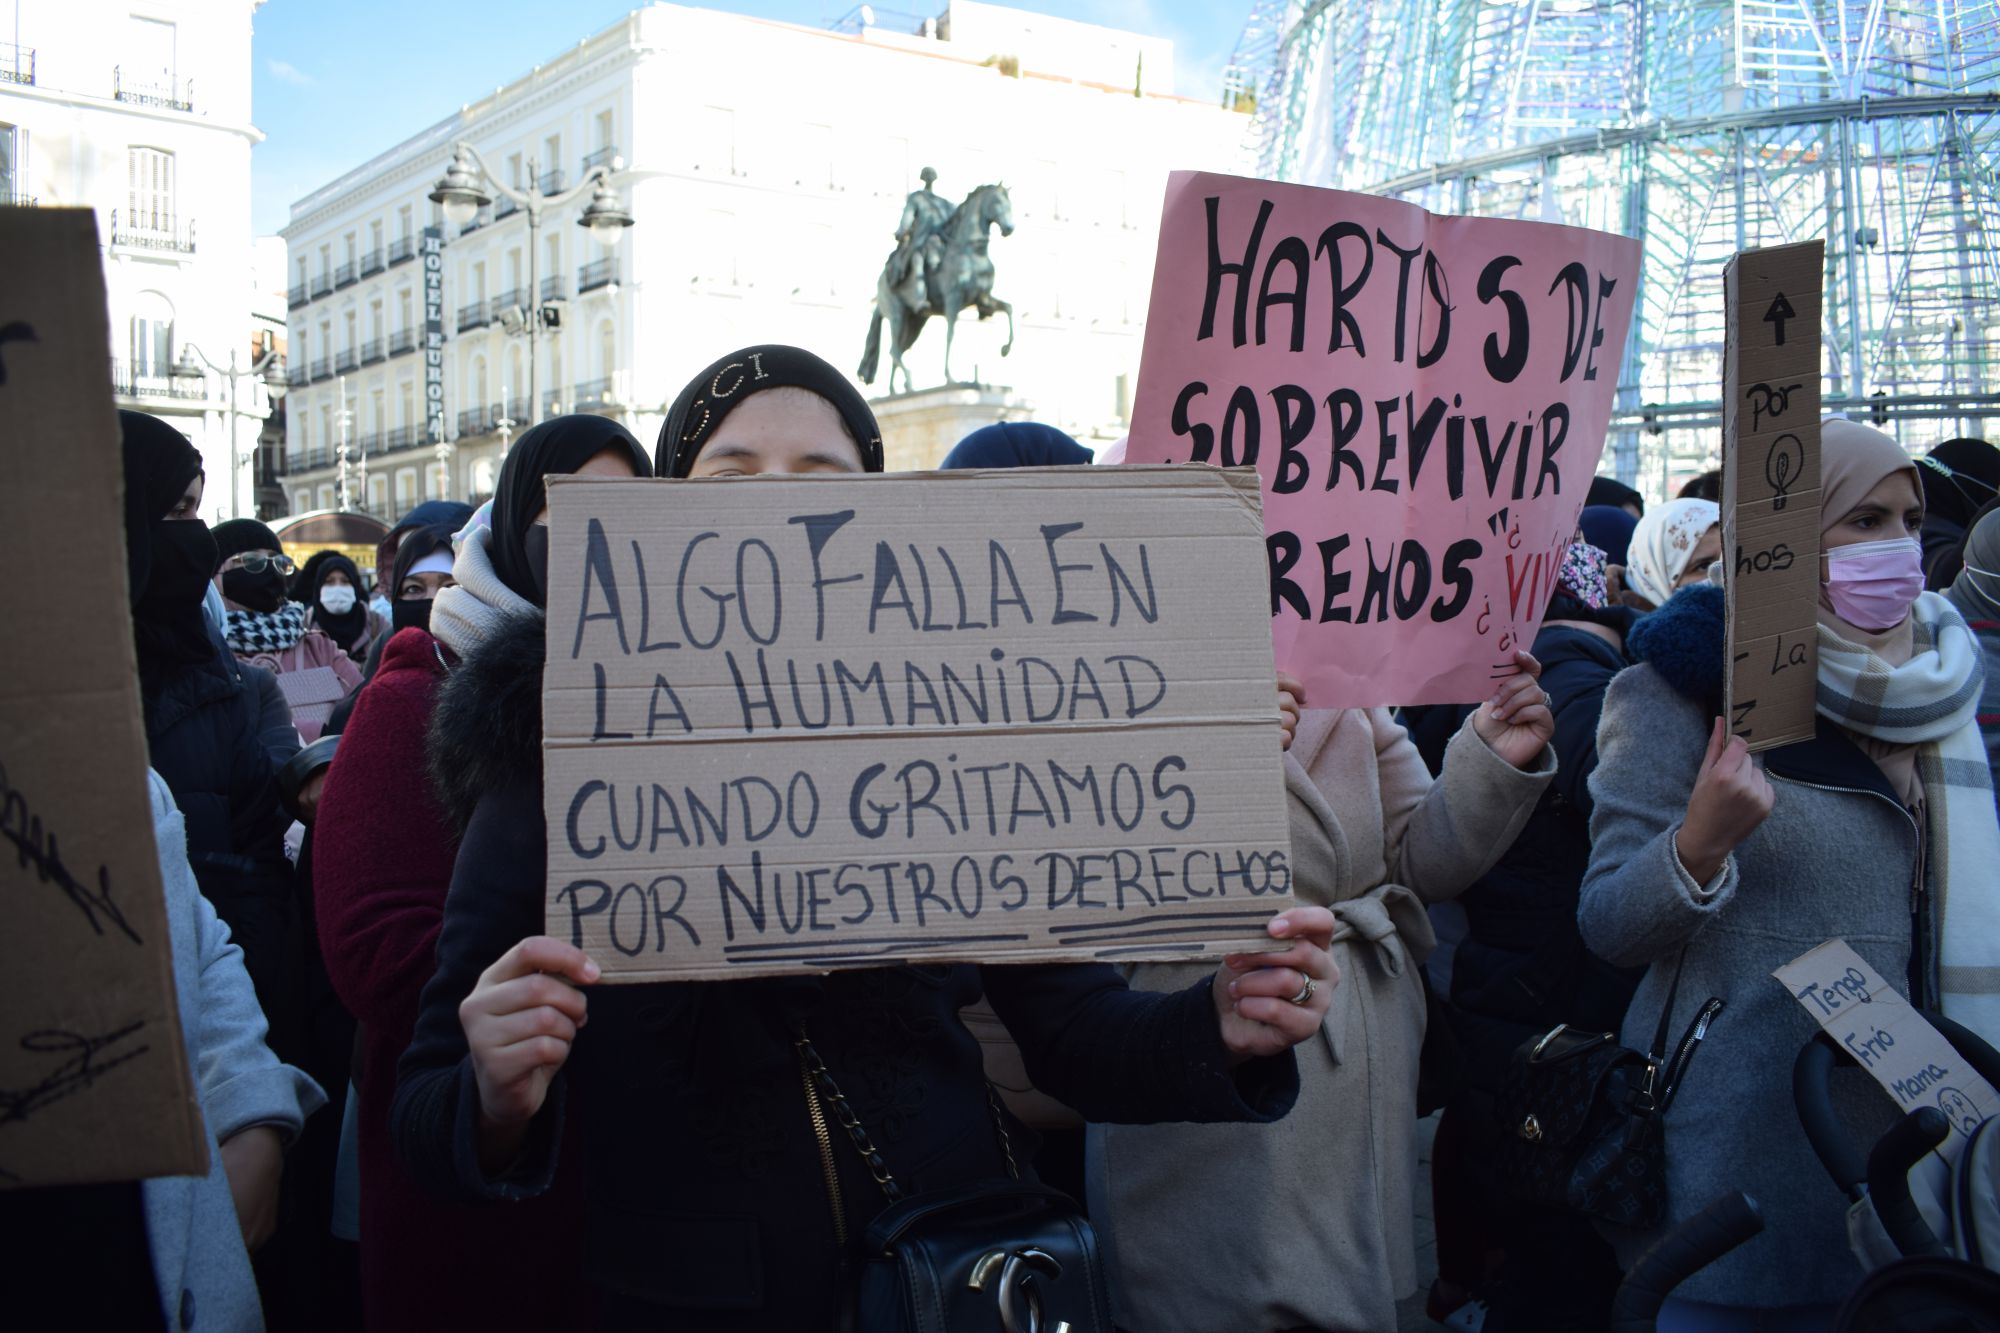 HOTEL EUROPA
CI
HARTOS DE
SOBREVIVIR
REMOS "¿VIVI
ALGO FALLA EN
LA HUMANIDAD
CUANDO GRITAMOS
POR NUESTROS DERECHOS
Por
hos
La
Tengo
Frío
Mama